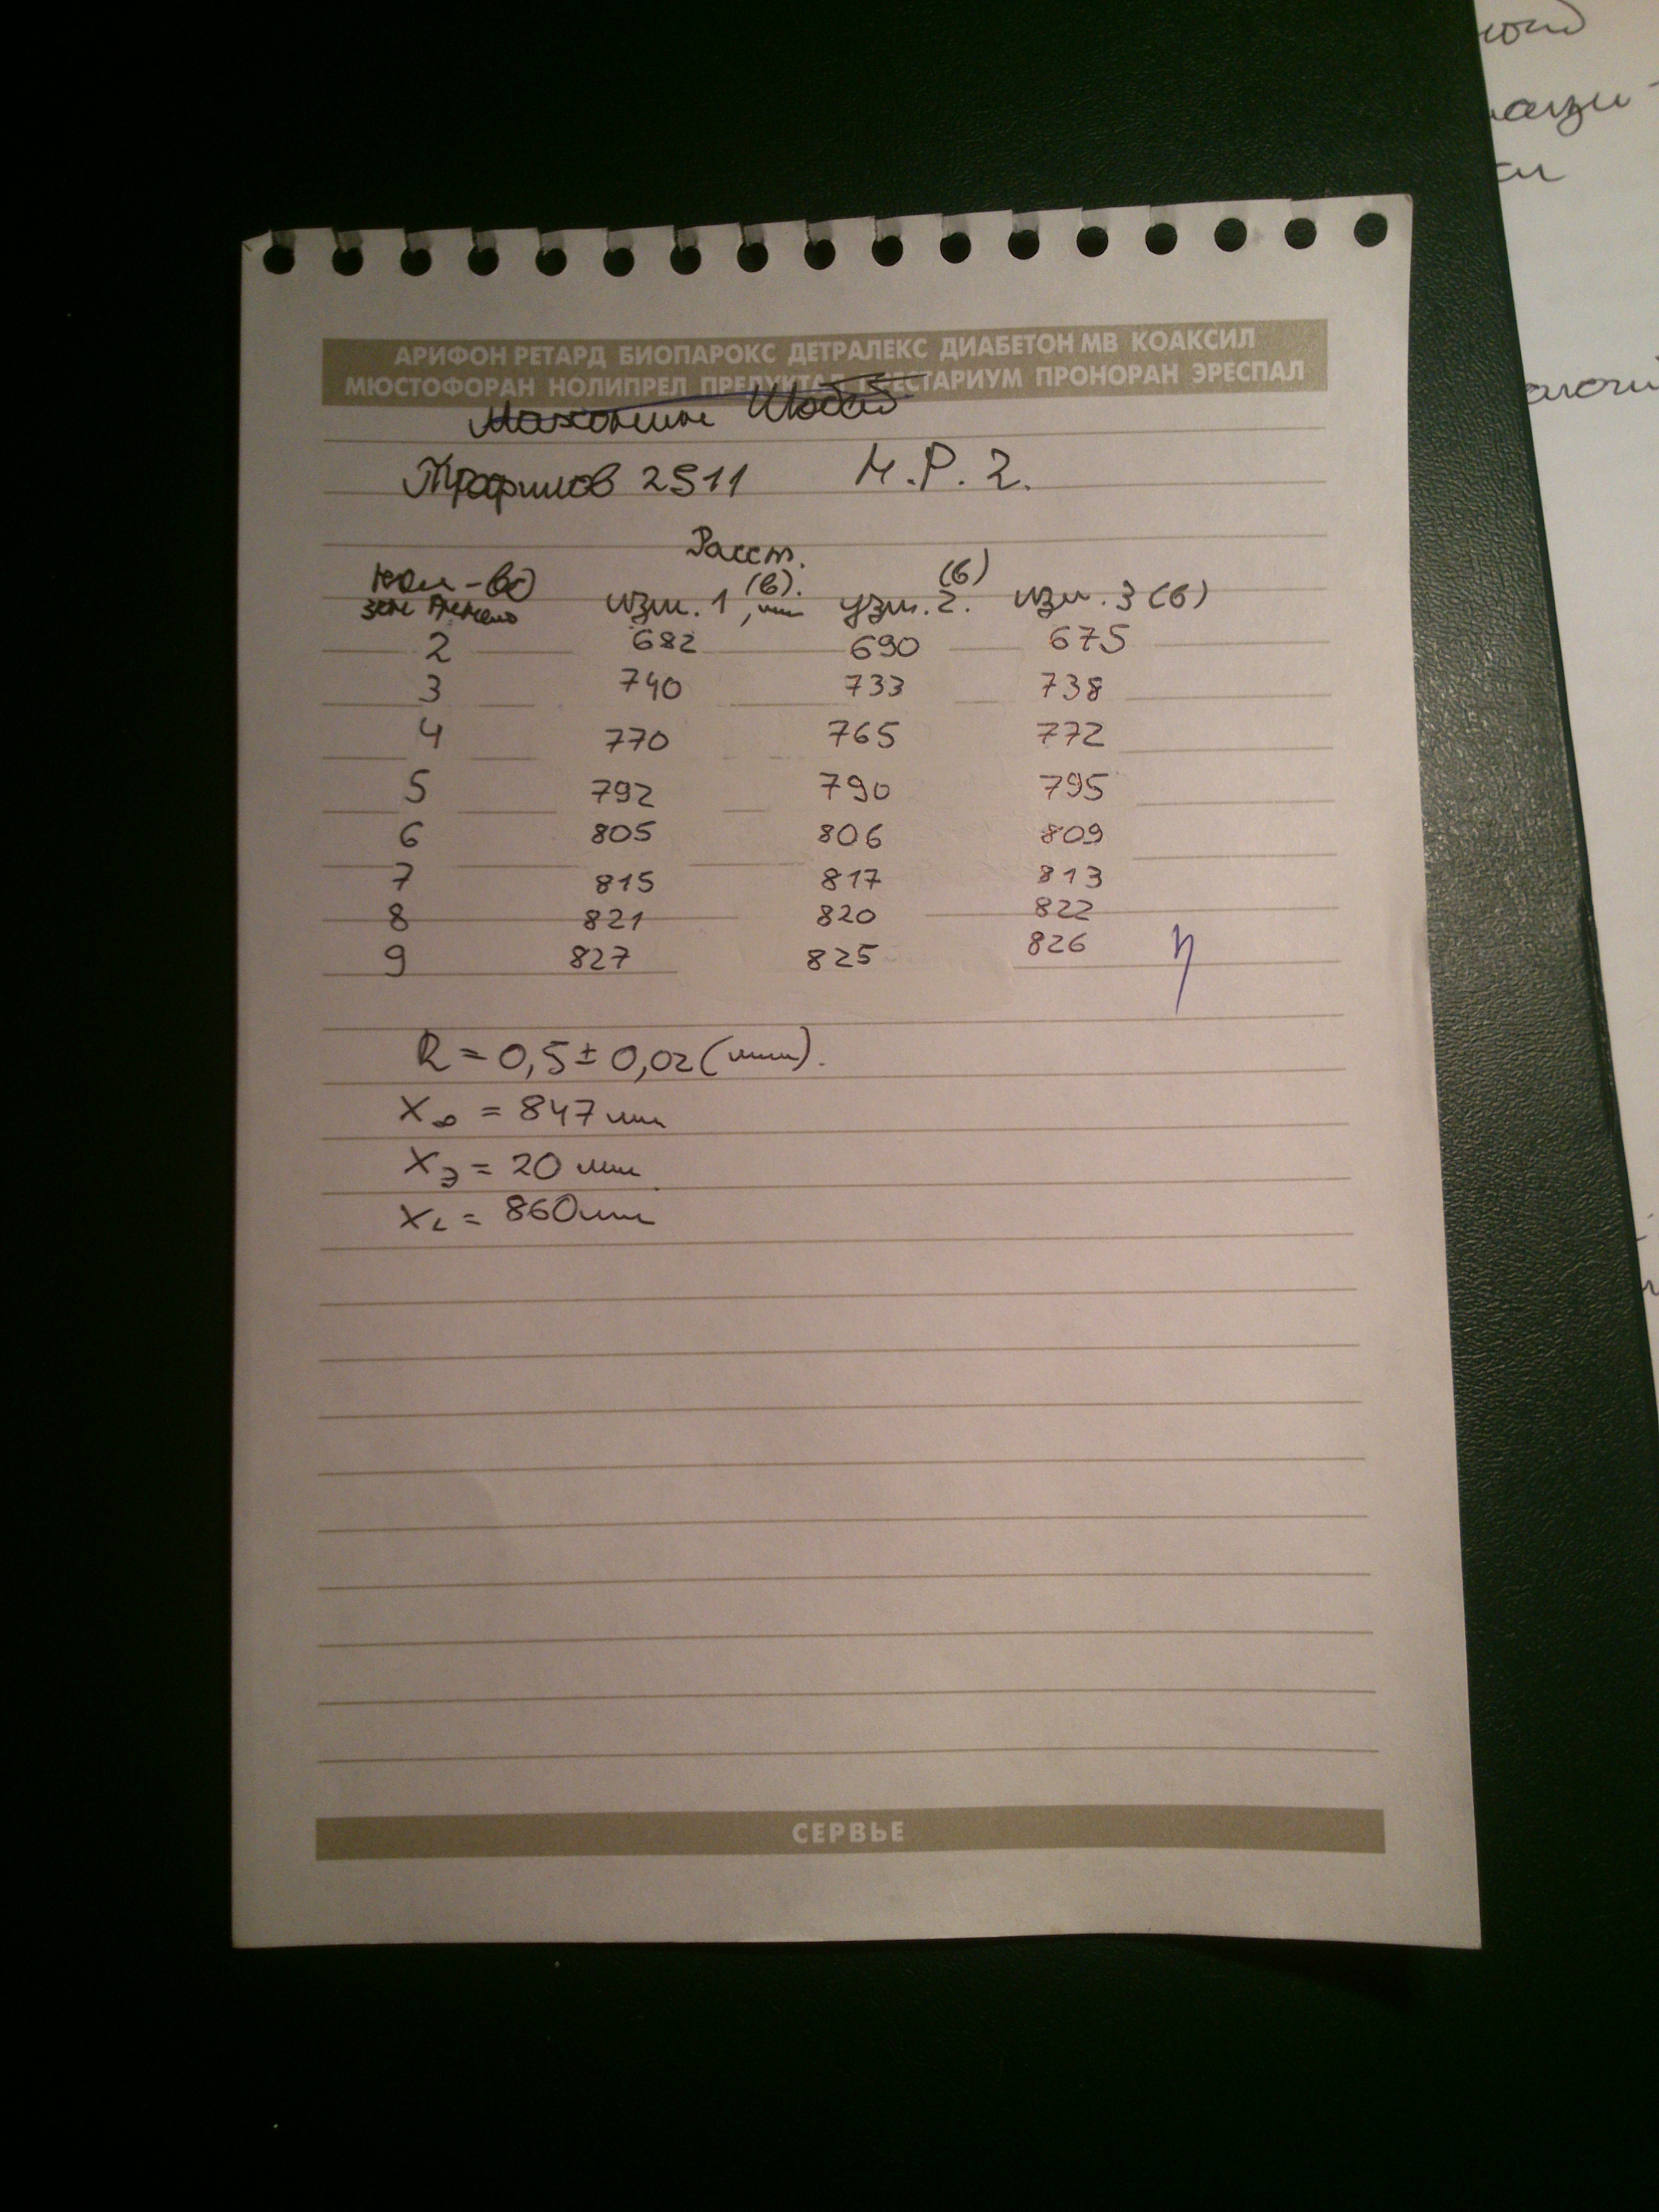 АРИФОН РЕТАРД БИОПАРОКС ДЕТРАЛЕКС ДИАБЕТОН МВ КОАКСИЛ
МЮСТОФОРАН НОЛИПРЕЛ ПРЕДУКТАЛ ПРЕСТАРИУМ ПРОНОРАН ЭРЕСПАЛ
2511 М.Р. 2.
Расст.
Кол-во изм. 1 (в). , мм изм. 2. (в) изм. 3 (в)
зон Френеля
2 682 690 675
3 740 733 738
4 770 765 772
5 792 790 795
6 805 806 809
7 815 817 813
8 821 820 822
9 827 825 826
R = 0,5 ± 0,02 (мм).
X∞ = 847 мм
Xэ = 20 мм
XL = 860 мм
СЕРВЬЕ